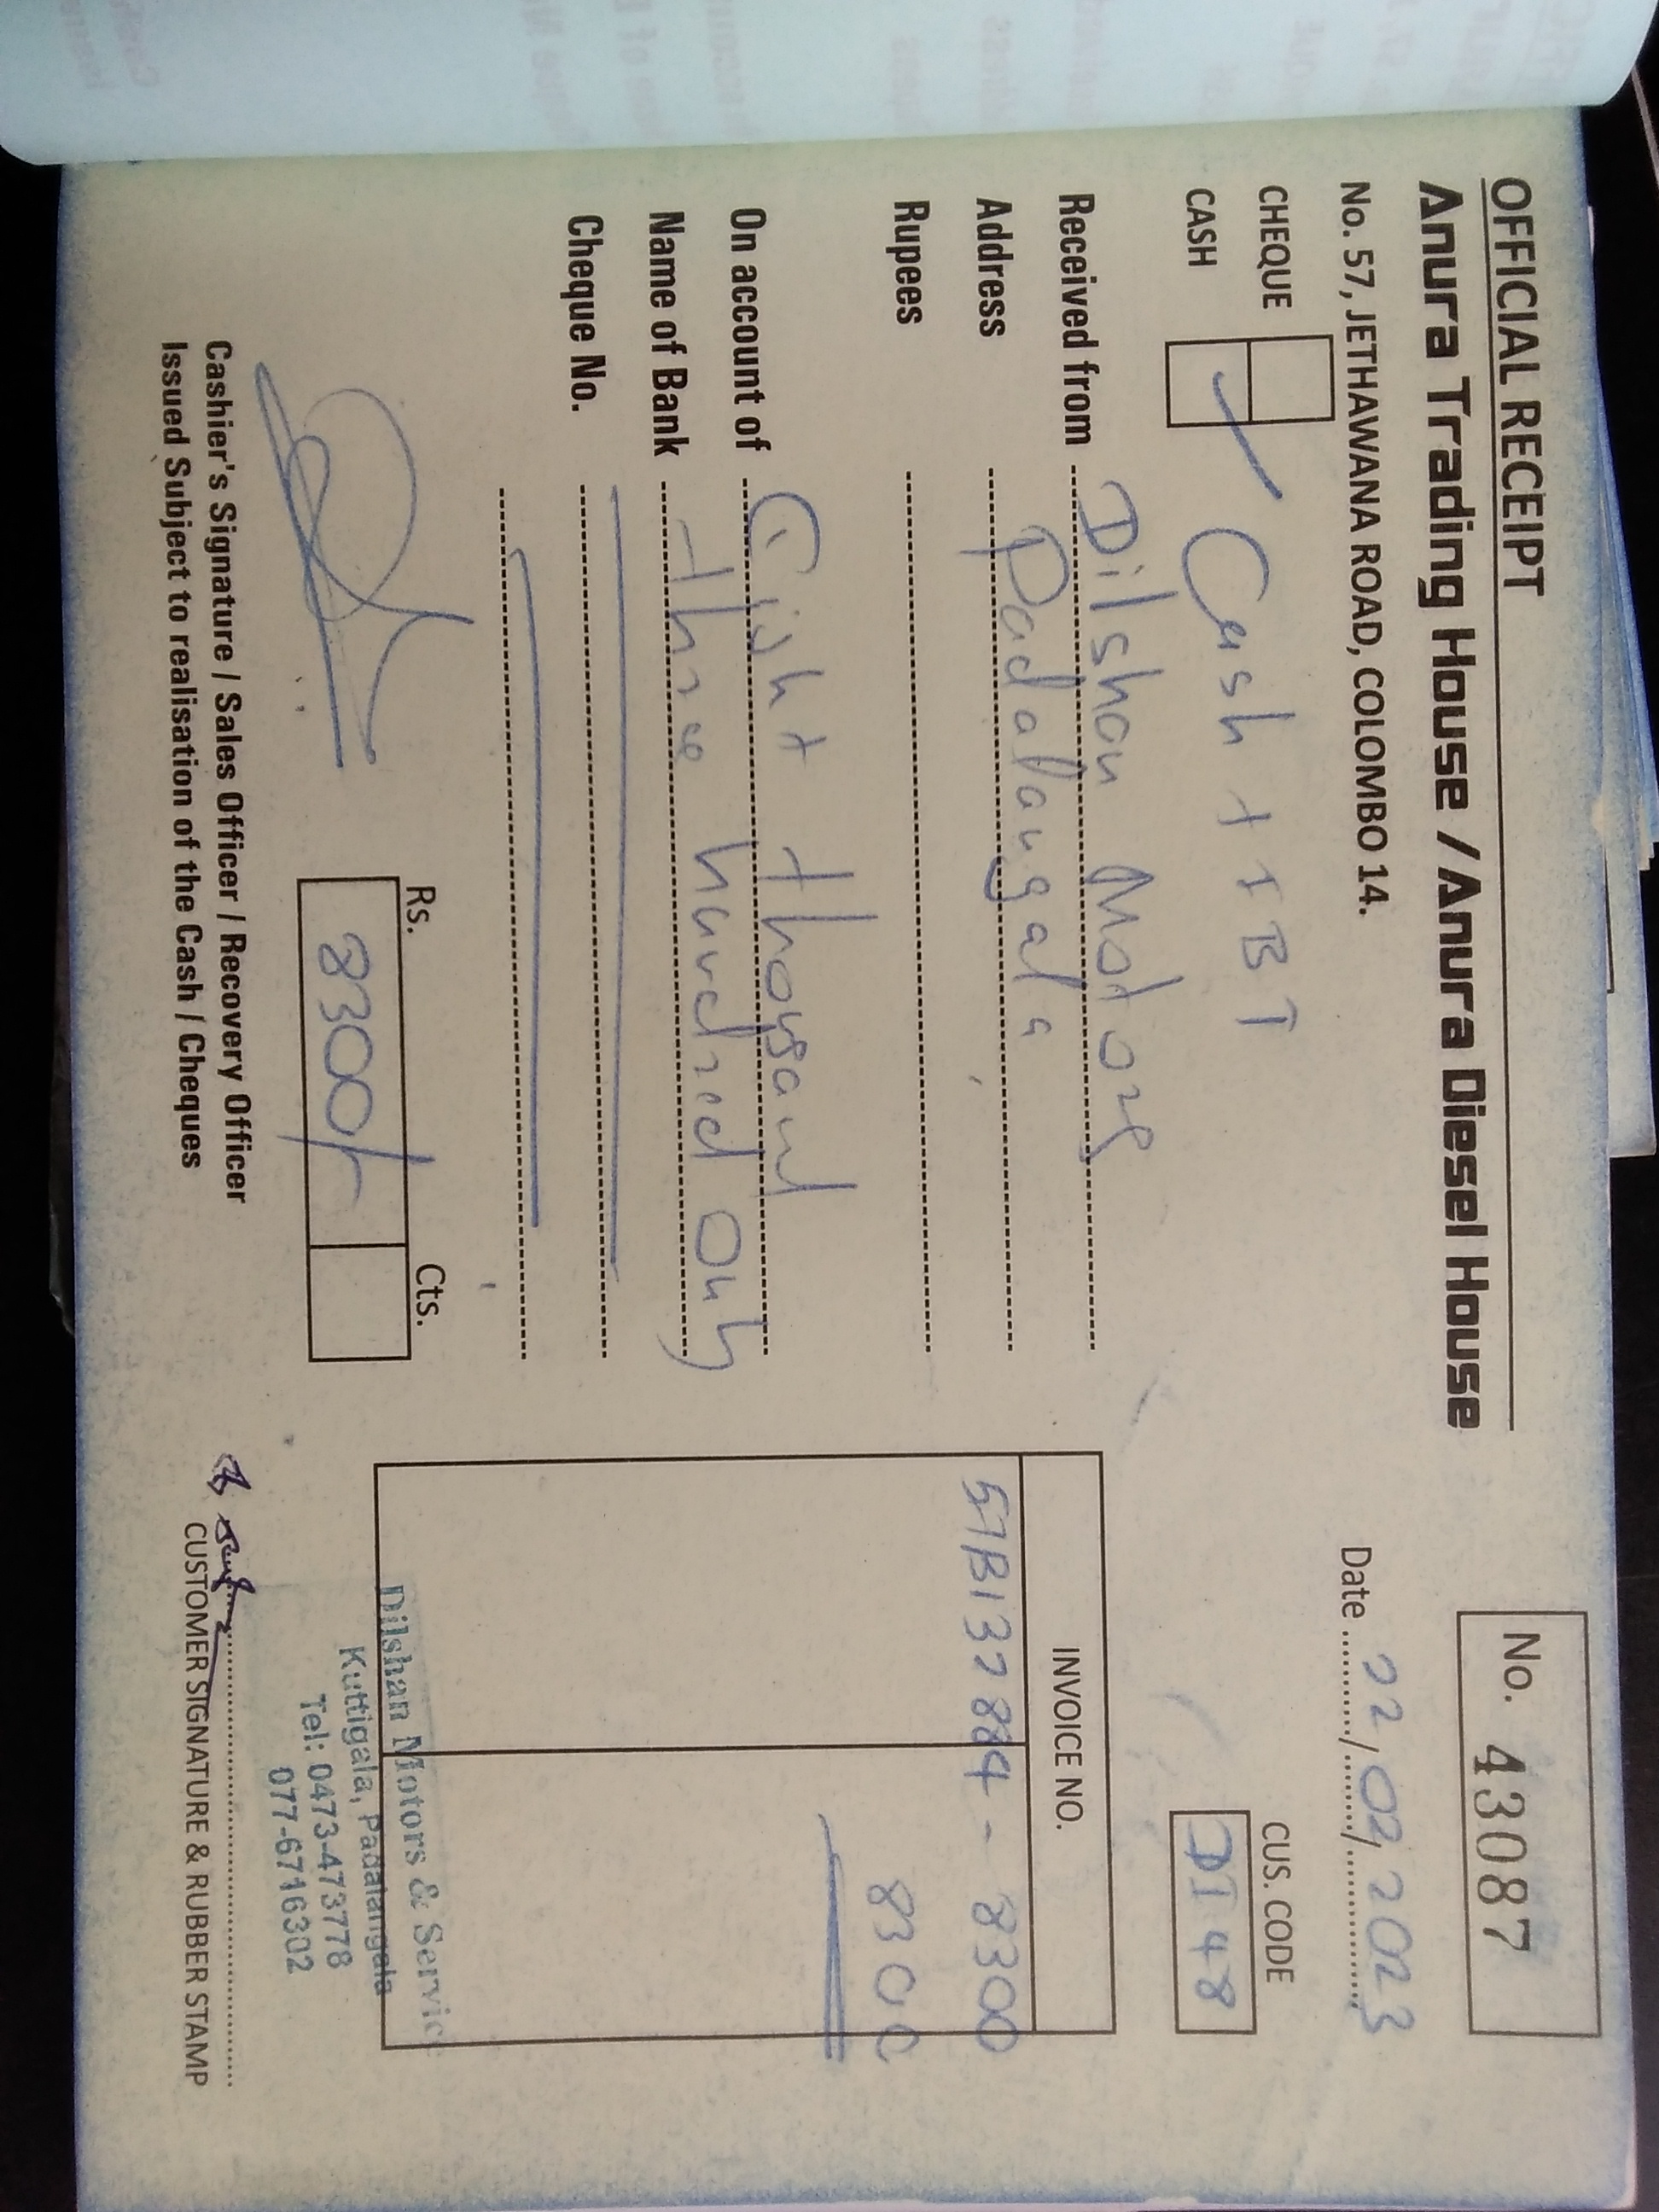 OFFICIAL RECEIPT
Anura Trading House / Anura Diesel House
No. 57, JETHAWANA ROAD, COLOMBO 14.
No. 43087
Date 22/02/2023
CHEQUE
CASH
Cash TTBT
CUS. CODE
DI48
Received from Dilshan Motors
Address Padalangala
Rupees
On account of Eight thousand
Name of Bank three hundred only
Cheque No.
INVOICE NO.
57B137884 - 8300
8300
Rs. Cts.
8300/-
Cashier's Signature / Sales Officer / Recovery Officer
Issued Subject to realisation of the Cash / Cheques
Dilshan Motors & Servic
Kuttigala, Padalangala
Tel: 0473-473778
077-6716302
CUSTOMER SIGNATURE & RUBBER STAMP